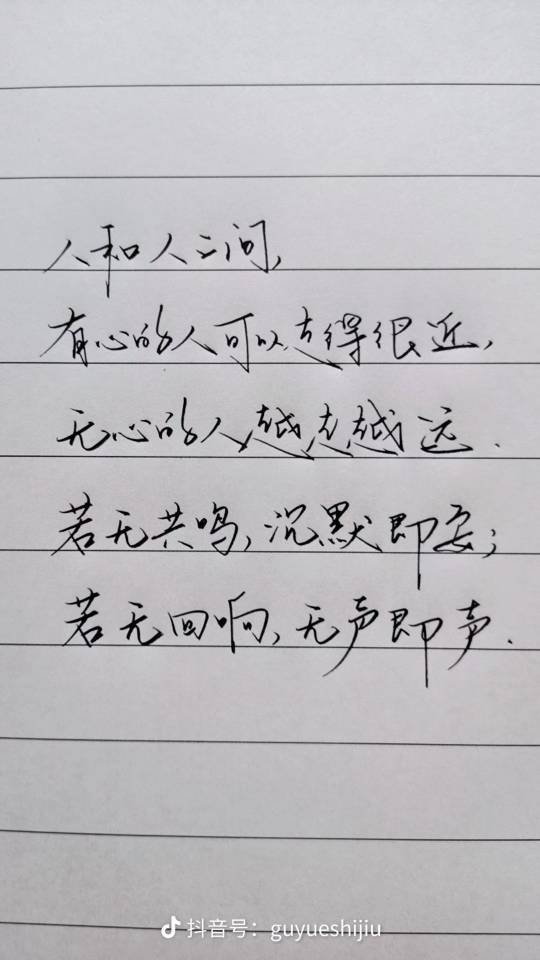 人和人之间,
有心的人可以走得很近,
无心的人越走越远.
若无共鸣,沉默即安;
若无回响,无声即声.
抖音号：guyueshijiu